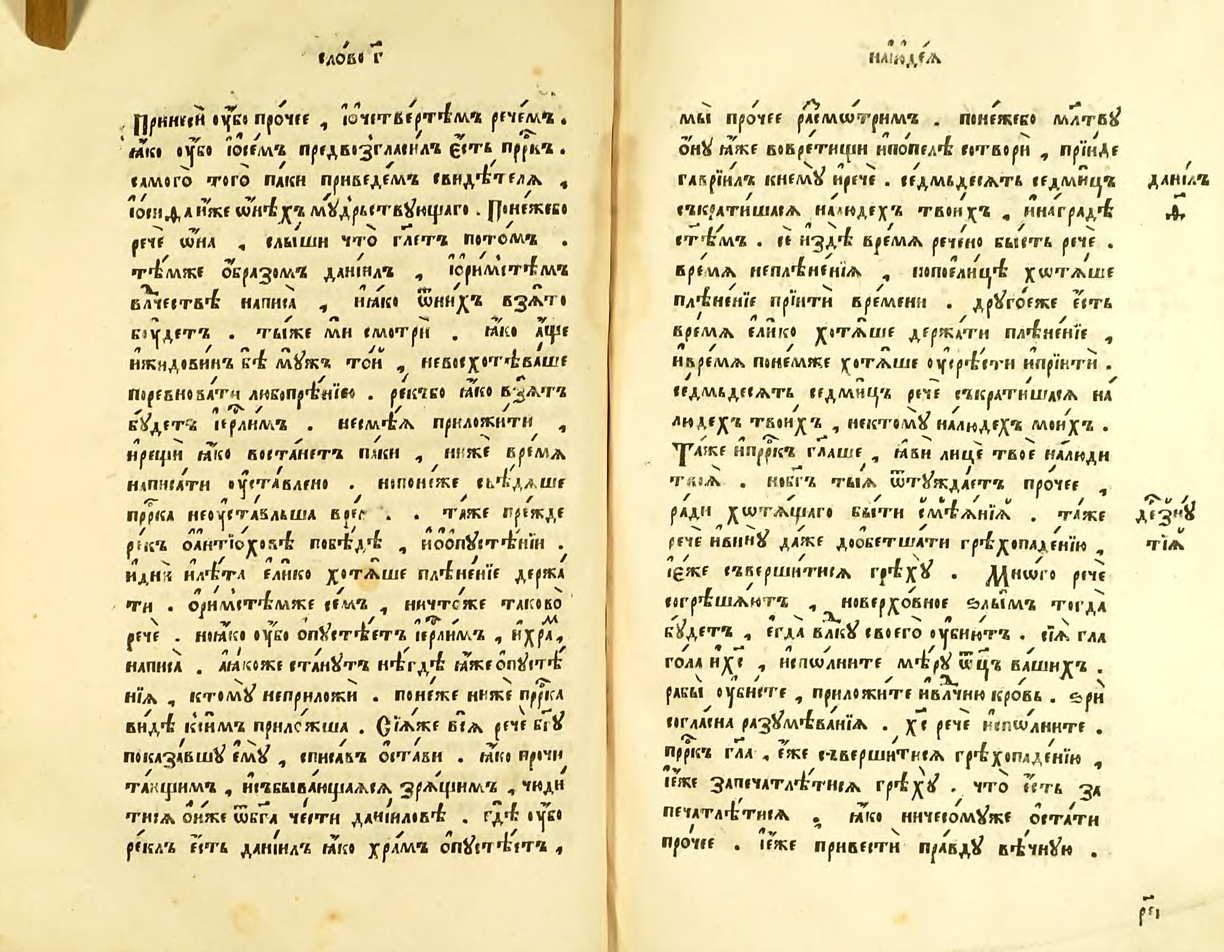 сло́во г҃
Принесѝ ᲂу҆̀бо про́чее , і҆ѡ҆четве́ртѣмъ рече́мъ .
ꙗ҆́ко ᲂу҆̀бо і҆ѻ҆се́мъ предвозгласи́лъ є҆́сть прⷪ҇ркъ .
самого̀ того̀ па́ки приведе́мъ свидѣ́телѧ ,
і҆ѻ҆сиѳа и҆́же ѡ҆нѣ́хъ мꙋ́дрьствꙋющаго . Поне́жебо
речѐ ѡ҆на , слы́ши что̀ гл҃етъ пото́мъ .
тѣ́мже ѻ҆́бразомъ данїи́лъ , і҆ѻ҆ри́мстѣмъ
влⷭ҇чествѣ написа̀ , и҆ꙗ҆́ко ѿни́хъ взѧ́то
бꙋ́детъ . ты́же мѝ смотрѝ . ꙗ҆́ко а҆́ще
и҆жидови́нъ бѣ̀ мꙋ́жъ то́й , невосхотѣ́ваше
поревнова́ти любопрѣ́нїю . ре́къбо ꙗ҆́ко взѧ́тъ
бꙋ́детъ і҆ерⷭ҇ли́мъ . несмѣ́ѧ приложи́ти ,
и҆рещѝ ꙗ҆́ко воста́нетъ па́ки , ни́же вре́мѧ
написа́ти ᲂу҆ста́влено . нопоне́же свѣ́дѧше
прⷪ҇рка неᲂу҆ста́вльша . та́же пре́жде
ре́къ ѻ҆а҆нтїо́ховѣ побѣ́дѣ , и҆ѻ҆ѻ҆пꙋстѣ́нїи .
и҆днѝ и҆лѣ́та є҆ли́ко хотѧ́ше плѣне́нїе держа́
ти . ѻ҆ри́мстѣмже се́мъ , ничто́же таково̀
речѐ . ноꙗ҆́ко ᲂу҆́бо ѻ҆пꙋстѣ́етъ і҆ерⷭ҇ли́мъ , и҆хра́мъ ,
написа̀ . а҆ꙗ҆́коже ста́нꙋтъ нѣ́гдѣ ꙗ҆́же ѻ҆пꙋстѣ́
нїѧ , ктомꙋ̀ неприложѝ . поне́же нижѐ прⷪ҇рка
ви́дѣ ксѝмъ прило́жша . Сїѧ́же всѧ̀ речѐ бг҃ꙋ
показа́вшꙋ є҆мꙋ̀ , списа́въ ѻ҆ста́ви . ꙗ҆́ко прочи
та́ющимъ , и҆събыва́ющаѧсѧ зрѧ́щимъ , чюди́
тисѧ ѻ҆́нже ѿбг҃а че́сти данїи́ловѣ . гдѣ̀ ᲂу҆́бо
ре́клъ є҆́сть данїи́лъ ꙗ҆́ко хра́мъ ѻ҆пꙋстѣ́етъ ,
наїю҆де́ѧ
мы̀ про́чее расмѡ́тримъ . поне́жебо мл҃твꙋ
ѻ҆́нꙋ ꙗ҆́же вовре́тищи и҆по́пелѣ сотворѝ , прїи́де
гаврїи́лъ кнемꙋ̀ и҆речѐ . се́дмьдесѧтъ седми́цъ
съкрати́шасѧ налю́дехъ твои́хъ , и҆на́градѣ
ст҃ѣ́мъ . сѐ и҆здѣ̀ вре́мѧ рече́но бы́сть речѐ .
вре́мѧ неплѣне́нїѧ , нопоели́цѣ хѡтѧ́ше
плѣне́нїе прїитѝ вре́мени . дрꙋго́еже є҆́сть
вре́мѧ є҆ли́ко хотѧ́ше держа́ти плѣне́нїе ,
и҆вре́мѧ поне́мже хотѧ́ше ᲂу҆срѣ́сти и҆прїитѝ .
се́дмьдесѧтъ седми́цъ речѐ съкрати́шасѧ на́
лю́дехъ твои́хъ , нектомꙋ̀ налю́дехъ мои́хъ .
Та́же и҆прⷪ҇ркъ гл҃аше , ꙗ҆вѝ лицѐ твоѐ на́люди
твоѧ̀ . но́бг҃ъ ты́ѧ ѿтꙋжда́етъ про́чее ,
ра́ди хѡтѧ́щаго бы́ти смѣѧ́нїѧ . та́же
речѐ и҆винꙋ̀ да́же доѻ҆бетша́ти грѣхопаде́нїю ,
і҆є҆́же съверши́тисѧ грѣхꙋ̀ . Мно́го речѐ
согрѣша́ютъ , новерхо́вное ѕлы̀мъ тогда̀
бꙋ́детъ , є҆гда̀ влⷣкꙋ своего̀ ᲂу҆бїю́тъ . сїѧ̀ гла
го́ла и҆хⷭ҇ , и҆спо́лните мѣ́рꙋ ѿц҃ъ ва́шихъ .
рабы̀ ᲂу҆би́сте , приложи́те и҆влⷣчню кро́вь . ѕрѝ
согла́сна разꙋмѣва́нїѧ . хⷭ҇ речѐ и҆спо́лните .
прⷪ҇ркъ гл҃а , є҆́же съверши́тисѧ грѣхопаде́нїю ,
і҆є҆́же запечатлѣ́тисѧ грѣхꙋ̀ . что̀ є҆́сть за
печатлѣ́тисѧ , ꙗ҆́ко ничесомꙋ́же ѻ҆ста́ти
про́чее . і҆є҆́же привестѝ пра́вдꙋ вѣ́чнꙋю .
данїи́лъ
ѳ҃
тїѧ҆
рє҃і